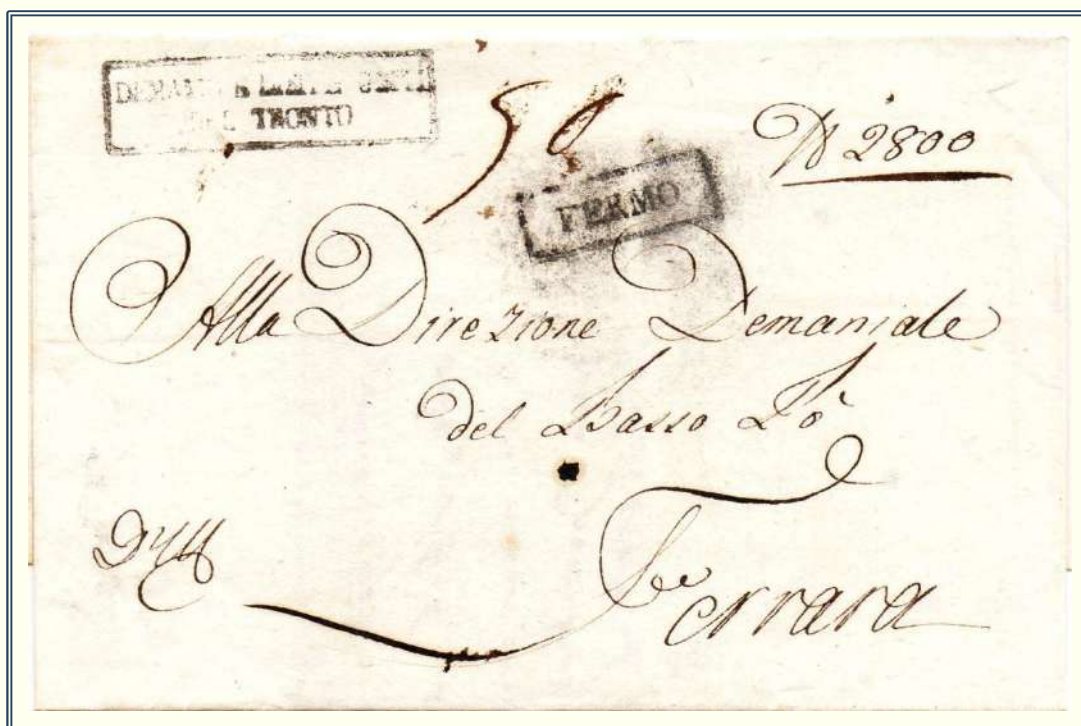 DEMANIO
DEL TRONTO
50
N 2800
FERMO
Alla Direzione Demaniale
del Basso Pò
Ferrara